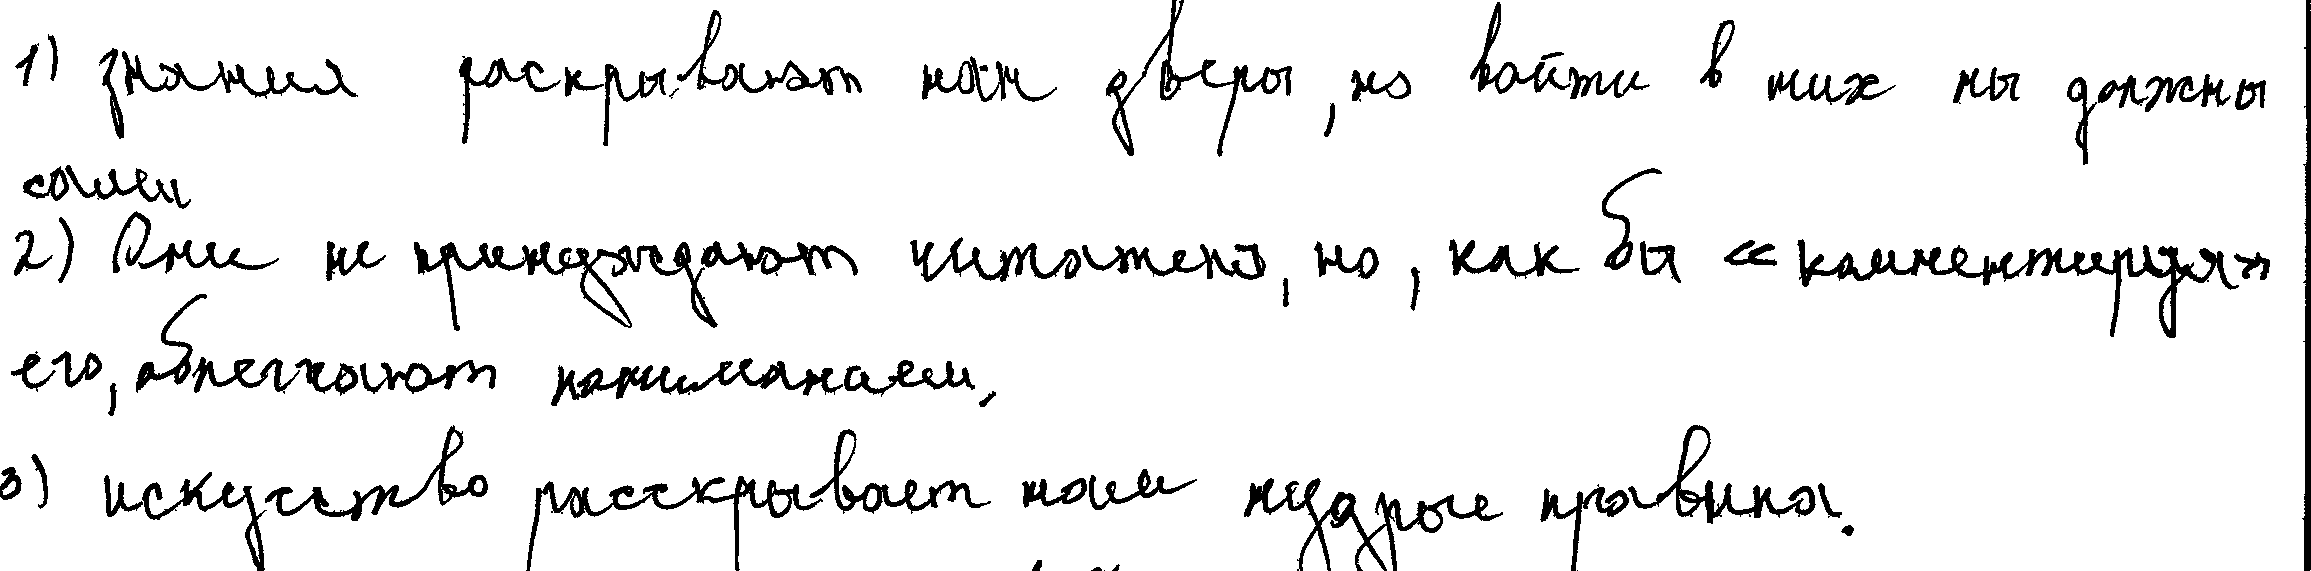 1) знания раскрывают нам дверы, но войти в них мы должны
сами
2) Они не принуждают читателя, но, как бы «комментируя»
его, облегчают пониманаем.
3) искусство расскрывает нам мудрые правила.